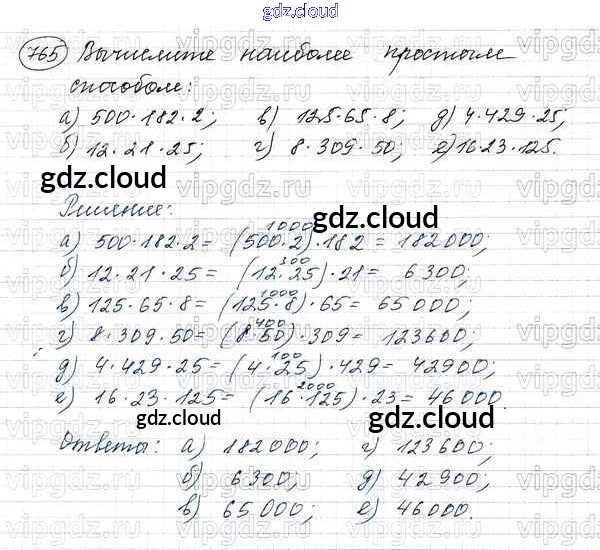 gdz.cloud
765 Вычислите наиболее простым
способом:
а) 500·182·2; в) 125·65·8; д) 4·429·25;
б) 12·21·25; г) 8·309·50; е) 16·23·125.
gdz.cloud
Решение:
gdz.cloud
1000
а) 500·182·2= (500·2)·182 = 182000;
300
б) 12·21·25 = (12·25)·21= 6300;
1000
в) 125·65·8= (125·8)·65= 65000;
400
г) 8·309·50= (8·50)·309= 123600;
100
д) 4·429·25= (4·25)·429= 42900;
2000
е) 16·23·125= (16·125)·23= 46000.
gdz.cloud gdz.cloud
Ответы: а) 182000; г) 123600;
б) 6300; д) 42900;
в) 65000; е) 46000.
gdz.cloud
vipgdz.ru